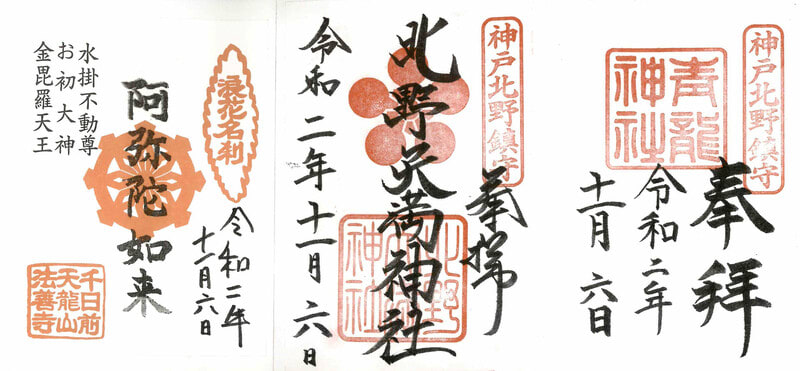 神戸北野鎮守
青龍
神社
奉拝
令和二年
十一月六日
神戸北野鎮守
奉拝
北野天満神社
北野
神社
令和二年十一月六日
浪花名刹
令和二年
十一月六日
阿弥陀如来
水掛不動尊
お初大神
金毘羅天王
千日前
天龍山
法善寺